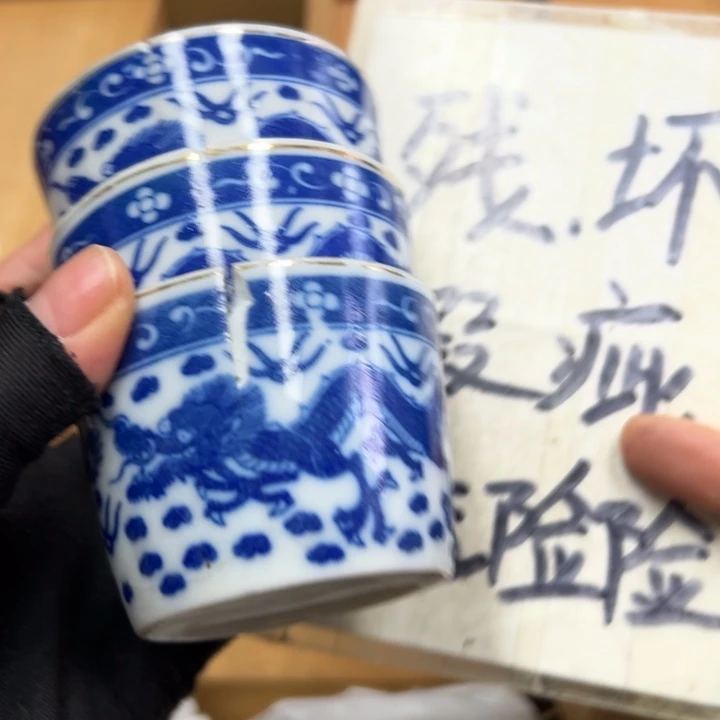 残.坏
瑕疵
险险